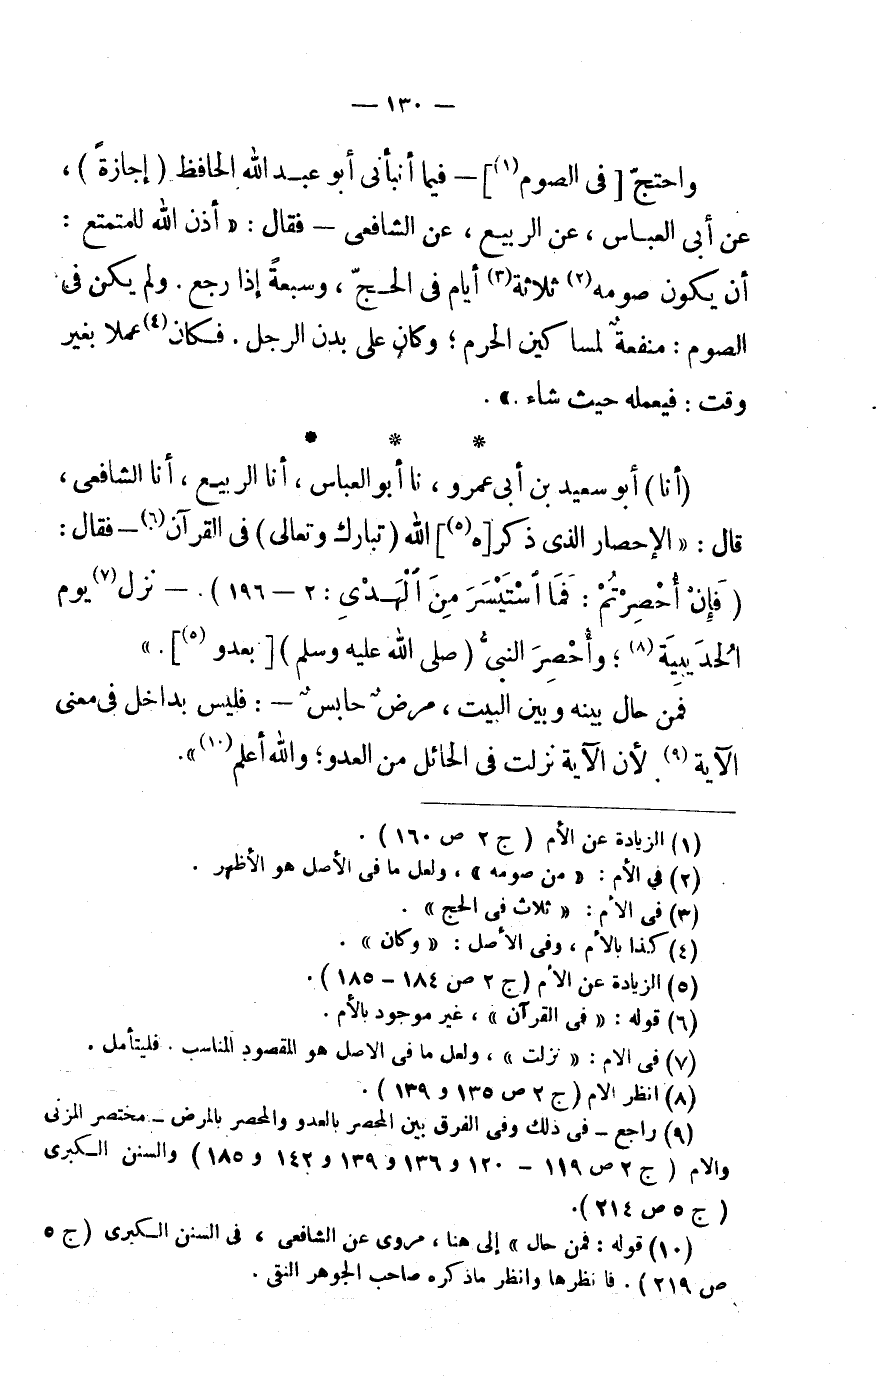 — ١٣٠ —
واحتجّ [ فى الصوم (١) ] — فيما أنبأنى أبو عبد الله الحافظ ( إجازةً ) ،
عن أبى العباس ، عن الربيع ، عن الشافعى — فقال : « أذن الله للمتمتع :
أن يكون صومه (٢) ثلاثة (٣) أيام فى الحجّ ، وسبعةً إذا رجع . ولم يكن فى
الصوم : منفعةٌ لمساكين الحرم ؛ وكان على بدن الرجل . فكان (٤) عملا بغير
وقت : فيعمله حيث شاء . » .
* * *
(أنا) أبو سعيد بن أبى عمرو ، نا أبو العباس ، أنا الربيع ، أنا الشافعى ،
قال : « الإحصار الذى ذكر[ه (٥) ] الله ( تبارك وتعالى ) فى القرآن (٦) — فقال :
( فَإِنْ أُحْصِرْتُمْ : فَمَا ٱسْتَيْسَرَ مِنَ ٱلْهَدْىِ : ٢ — ١٩٦ ) . — نزل (٧) يوم
الحُدَيبِيَة (٨) ؛ وأُحْصِرَ النبىُّ ( صلى الله عليه وسلم ) [ بعدو (٥) ] . »
فمن حال بينه وبين البيت ، مرضٌ حابسٌ — : فليس بداخل فى معنى
الآية (٩) . لأن الآية نزلت فى الحائل من العدو ؛ والله أعلم (١٠) » .
(١) الزيادة عن الأم ( ج ٢ ص ١٦٠ ) .
(٢) فى الأم : « من صومه » ، ولعل ما فى الأصل هو الأظهر .
(٣) فى الأم : « ثلاث فى الحج » .
(٤) كذا بالأم ، وفى الأصل : « وكان » .
(٥) الزيادة عن الأم ( ج ٢ ص ١٨٤ – ١٨٥ ) .
(٦) قوله : « فى القرآن » ، غير موجود بالأم .
(٧) فى الام : « نزلت » ، ولعل ما فى الاصل هو المقصود المناسب . فليتأمل .
(٨) انظر الام ( ج ٢ ص ١٣٥ و ١٣٩ ) .
(٩) راجع – فى ذلك وفى الفرق بين المحصر بالعدو والمحصر بالمرض – مختصر المزنى
والام ( ج ٢ ص ١١٩ – ١٢٠ و ١٣٦ و ١٣٩ و ١٤٢ و ١٨٥ ) والسنن الكبرى
( ج ٥ ص ٢١٤ ).
(١٠) قوله : فمن حال » إلى هنا ، مروى عن الشافعى ، فى السنن الكبرى ( ج ٥
ص ٢١٩ ) . فانظرها وانظر ماذكره صاحب الجوهر النقى .